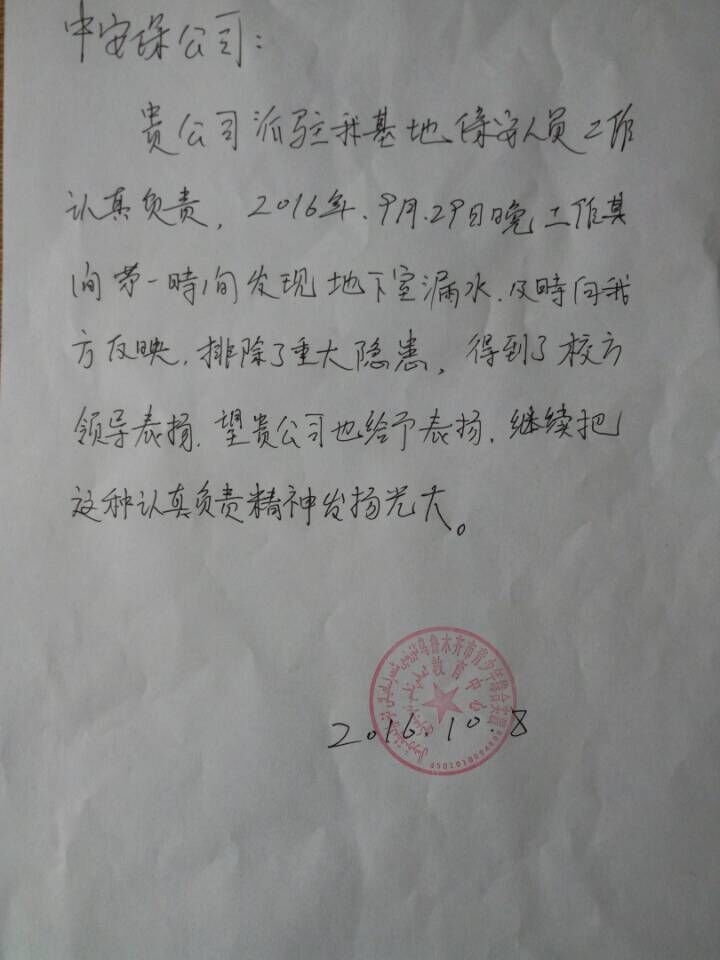 中安保公司：
贵公司派驻我基地保安人员工作
认真负责，2016年.9月.29日晚工作其
间第一時间发现地下室漏水.及時向我
方反映.排除了重大隐患，得到了校方
领导表扬.望贵公司也给予表扬.继续把
这种认真负责精神发扬光大。
乌鲁木齐市青少年综合实践
教育中心
2016.10.8